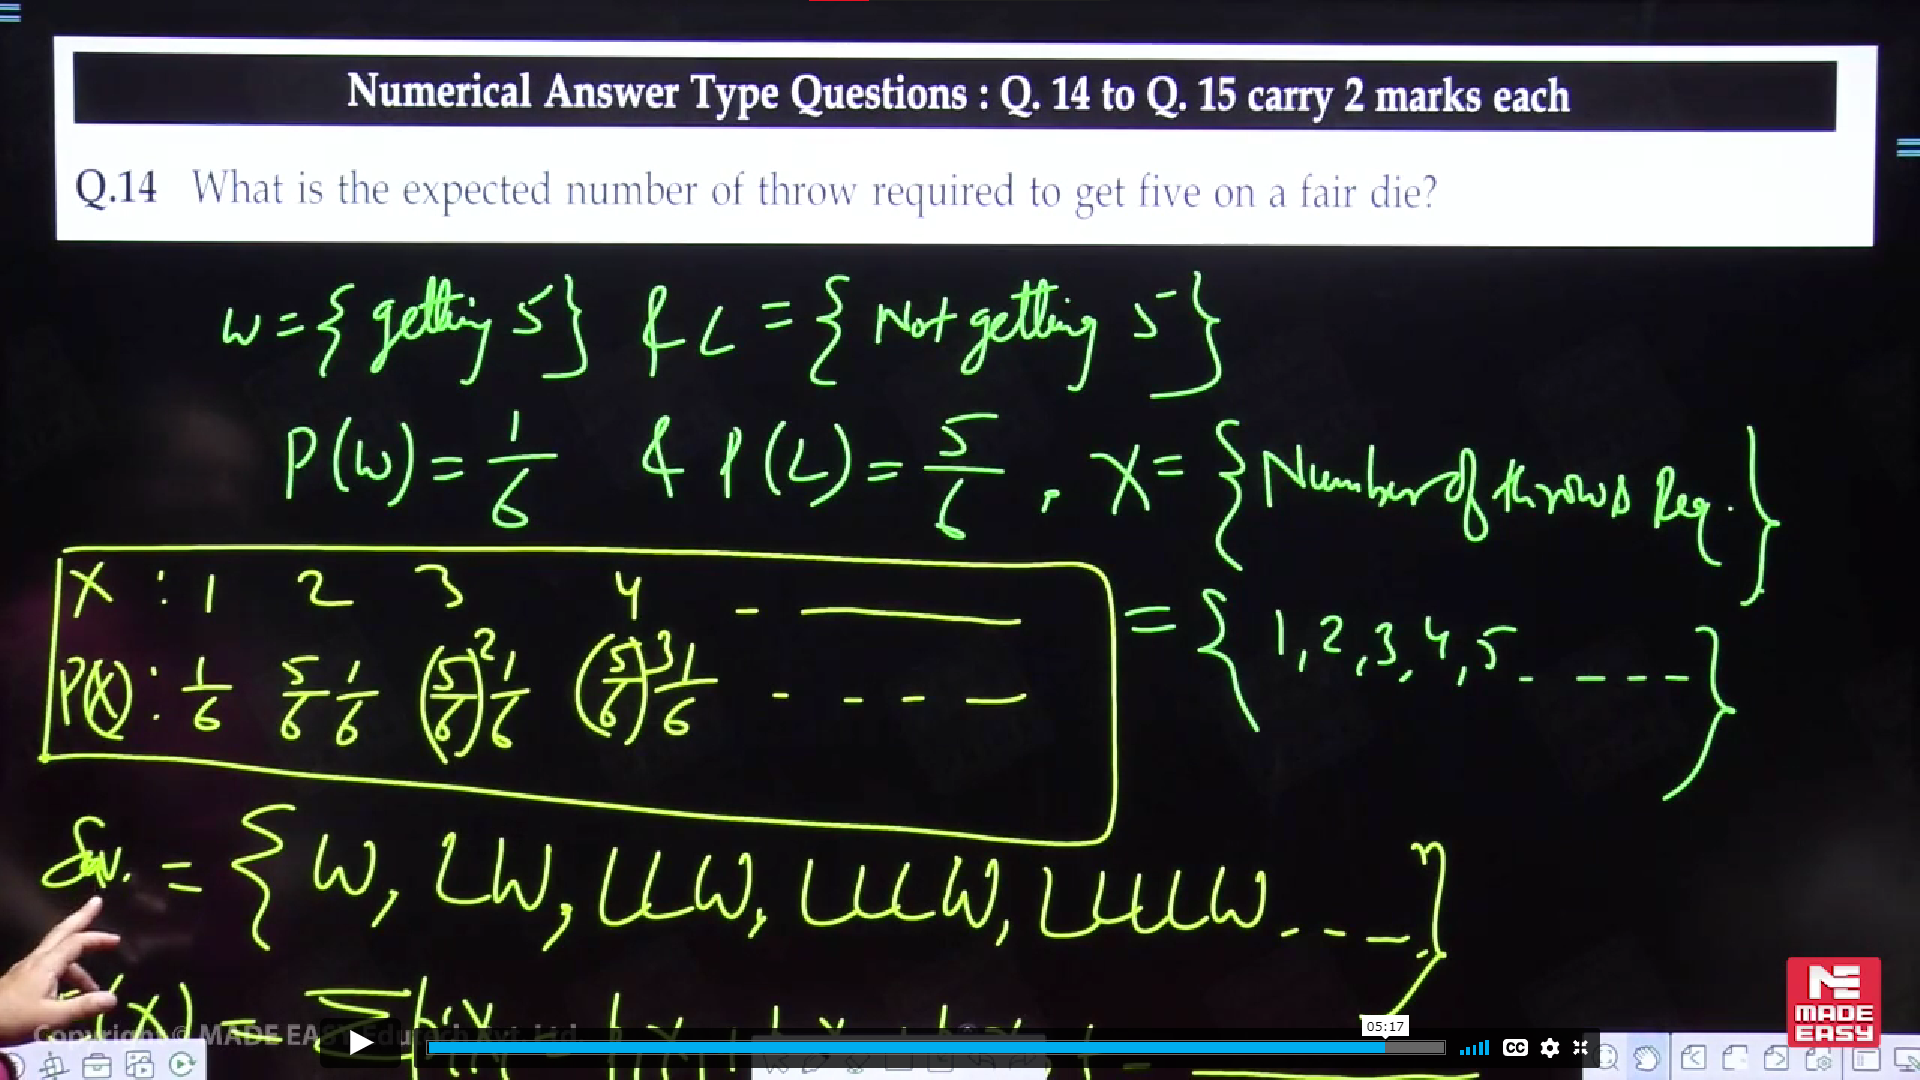 Numerical Answer Type Questions : Q. 14 to Q. 15 carry 2 marks each
Q.14 What is the expected number of throw required to get five on a fair die?
W = { getting 5 } & L = { Not getting 5 }
P(W) = 1/6 & P(L) = 5/6 , X = { Number of throws Req. }
= { 1, 2, 3, 4, 5 - - - - - }
X : 1 2 3 4 - ———
P(X) : 1/6 5/6 1/6 (5/6)^2 1/6 (5/6)^3 1/6 - - - —
= { W, LW, LLW, LLLW, LLLLW - - - }
(X) = Σ
Copyright © MADE EASY Edutech Pvt. Ltd.
05:17
CC
ME
MADE
EASY